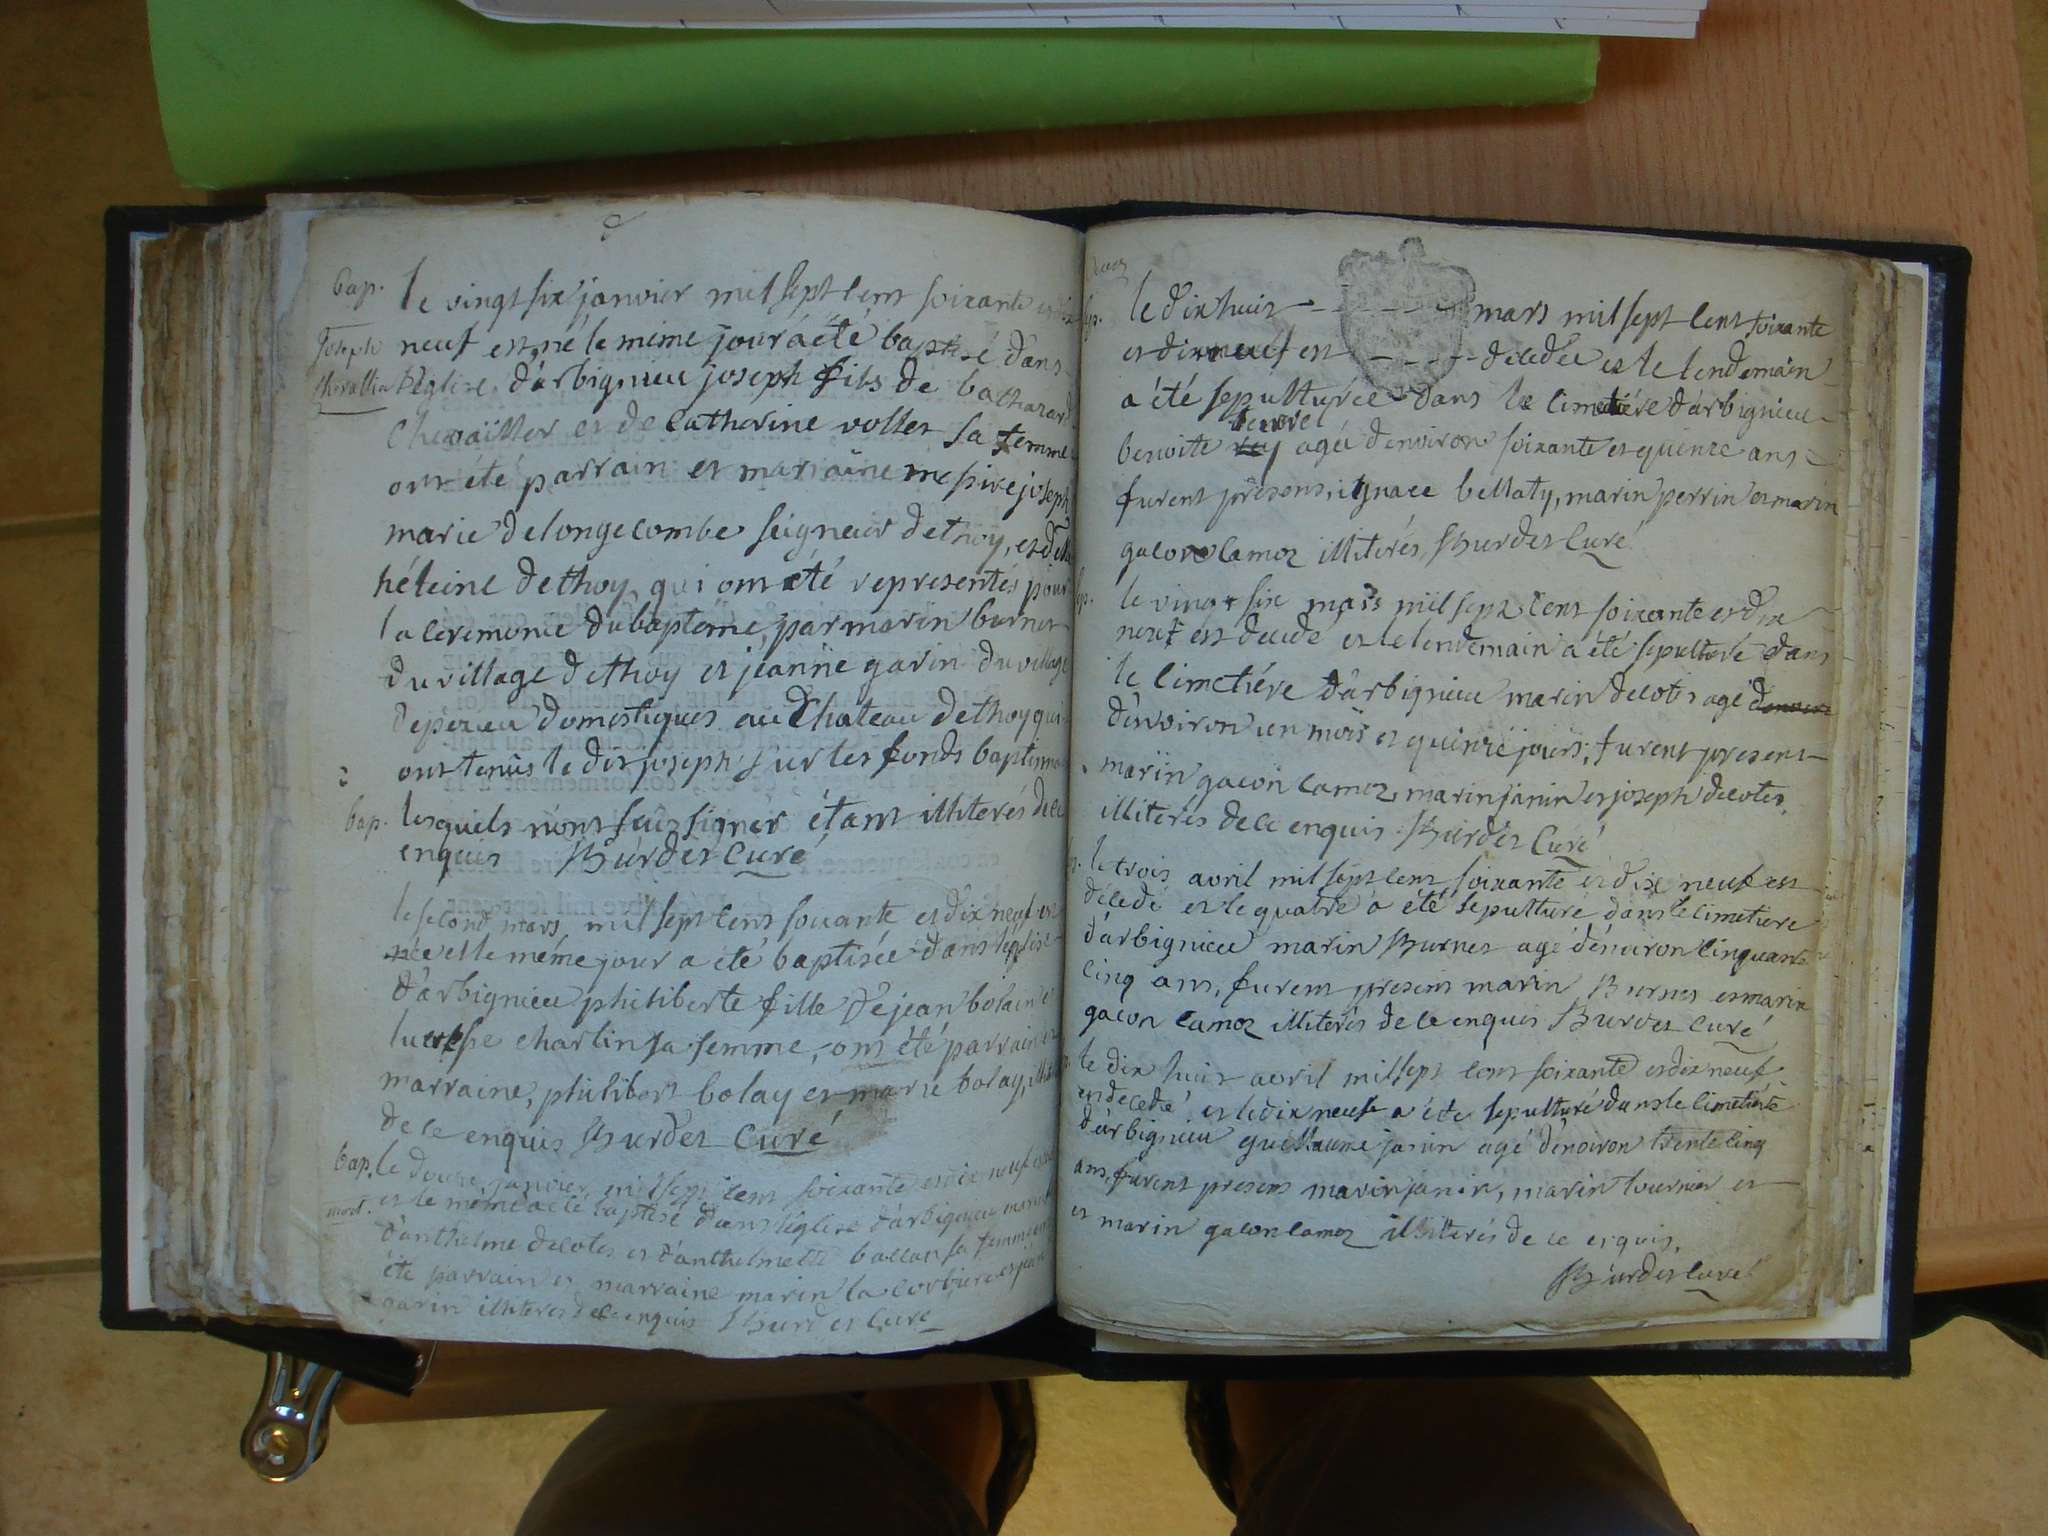 bap.
Joseph
Chevallier
le vingt six janvier mil sept cent soixante et dix
neuf est né le mime jour a été baptisé dans
l'église d'arbignieu joseph fils de bathazard
Chevaïller et de Catherine vollet sa femme
ont été parrain et marraine messire joseph
marie delongecombe seigneur dethoy, et dlle
héleine dethoy qui ont été representés pour
la ceremonie du baptême, par marin burnet
du village dethoy et jeanne garin du village
depezieu domestiques au Chateau dethoy qui
ont tenus le dit joseph sur les fonds baptismaux
lesquels n'ont sçû signer étant illiterés de ce
enquis Burdet Curé
bap.
le second mars mil sept cent soixante et dix neuf est
née et le même jour a été baptisée dans léglise
d'arbignieu philiberte fille de jean bolain et
charlin sa femme, ont été parrain et
marraine, philibert bolay et marie bolay, illit
de ce enquis Burdet Curé
bap.
mort.
le douze janvier mil sept cent soixante et dix neuf est né
et le même a été baptisé dans léglise d'arbignieu marin
d'anthelme decotes et d'anthelmette ballan sa femme
été parrain et marraine marin la corbiere et jean
garin illiteres de ce enquis Burdet Curé
le dix huit - - - mars mil sept cent soixante
et dix neuf est - - - décédée et le lendemain
a été sepulturée dans le cimetiére d'arbignieu
benoite rey agée denviron soixante et quinze ans
furent présens, ignace bellaty, marin perrin et marin
gacon camoz illiterés, Burdet Curé
le vingt six mars mil sept cent soixante et dix
neuf est décédé et le lendemain a été sepulturé dans
le cimetiére d'arbignieu marin decotes agé
d'environ un mois et quinze jours, furent present
marin gacon camoz, marin janin et joseph decotes
illiterés de ce enquis Burdet Curé
le trois avril mil sept cent soixante et dix neuf est
décédé et le quatre a été sepulturé dans le cimetiere
d'arbignieu marin Burnet agé d'énviron cinquante
cinq ans, furent presens marin Burnet et marin
gacon camoz illiterés de ce enquis Burdet Curé
le dix huit avril mil sept cent soixante et dix neuf
est décédé et le dix neuf a été sepulturé dans le cimetiére
d'arbignieu guillaume janin agé d'énviron trente cinq
ans, furent presens marin janin, marin tournier et
et marin gacon camoz illiterés de ce enquis,
Burdet Curé